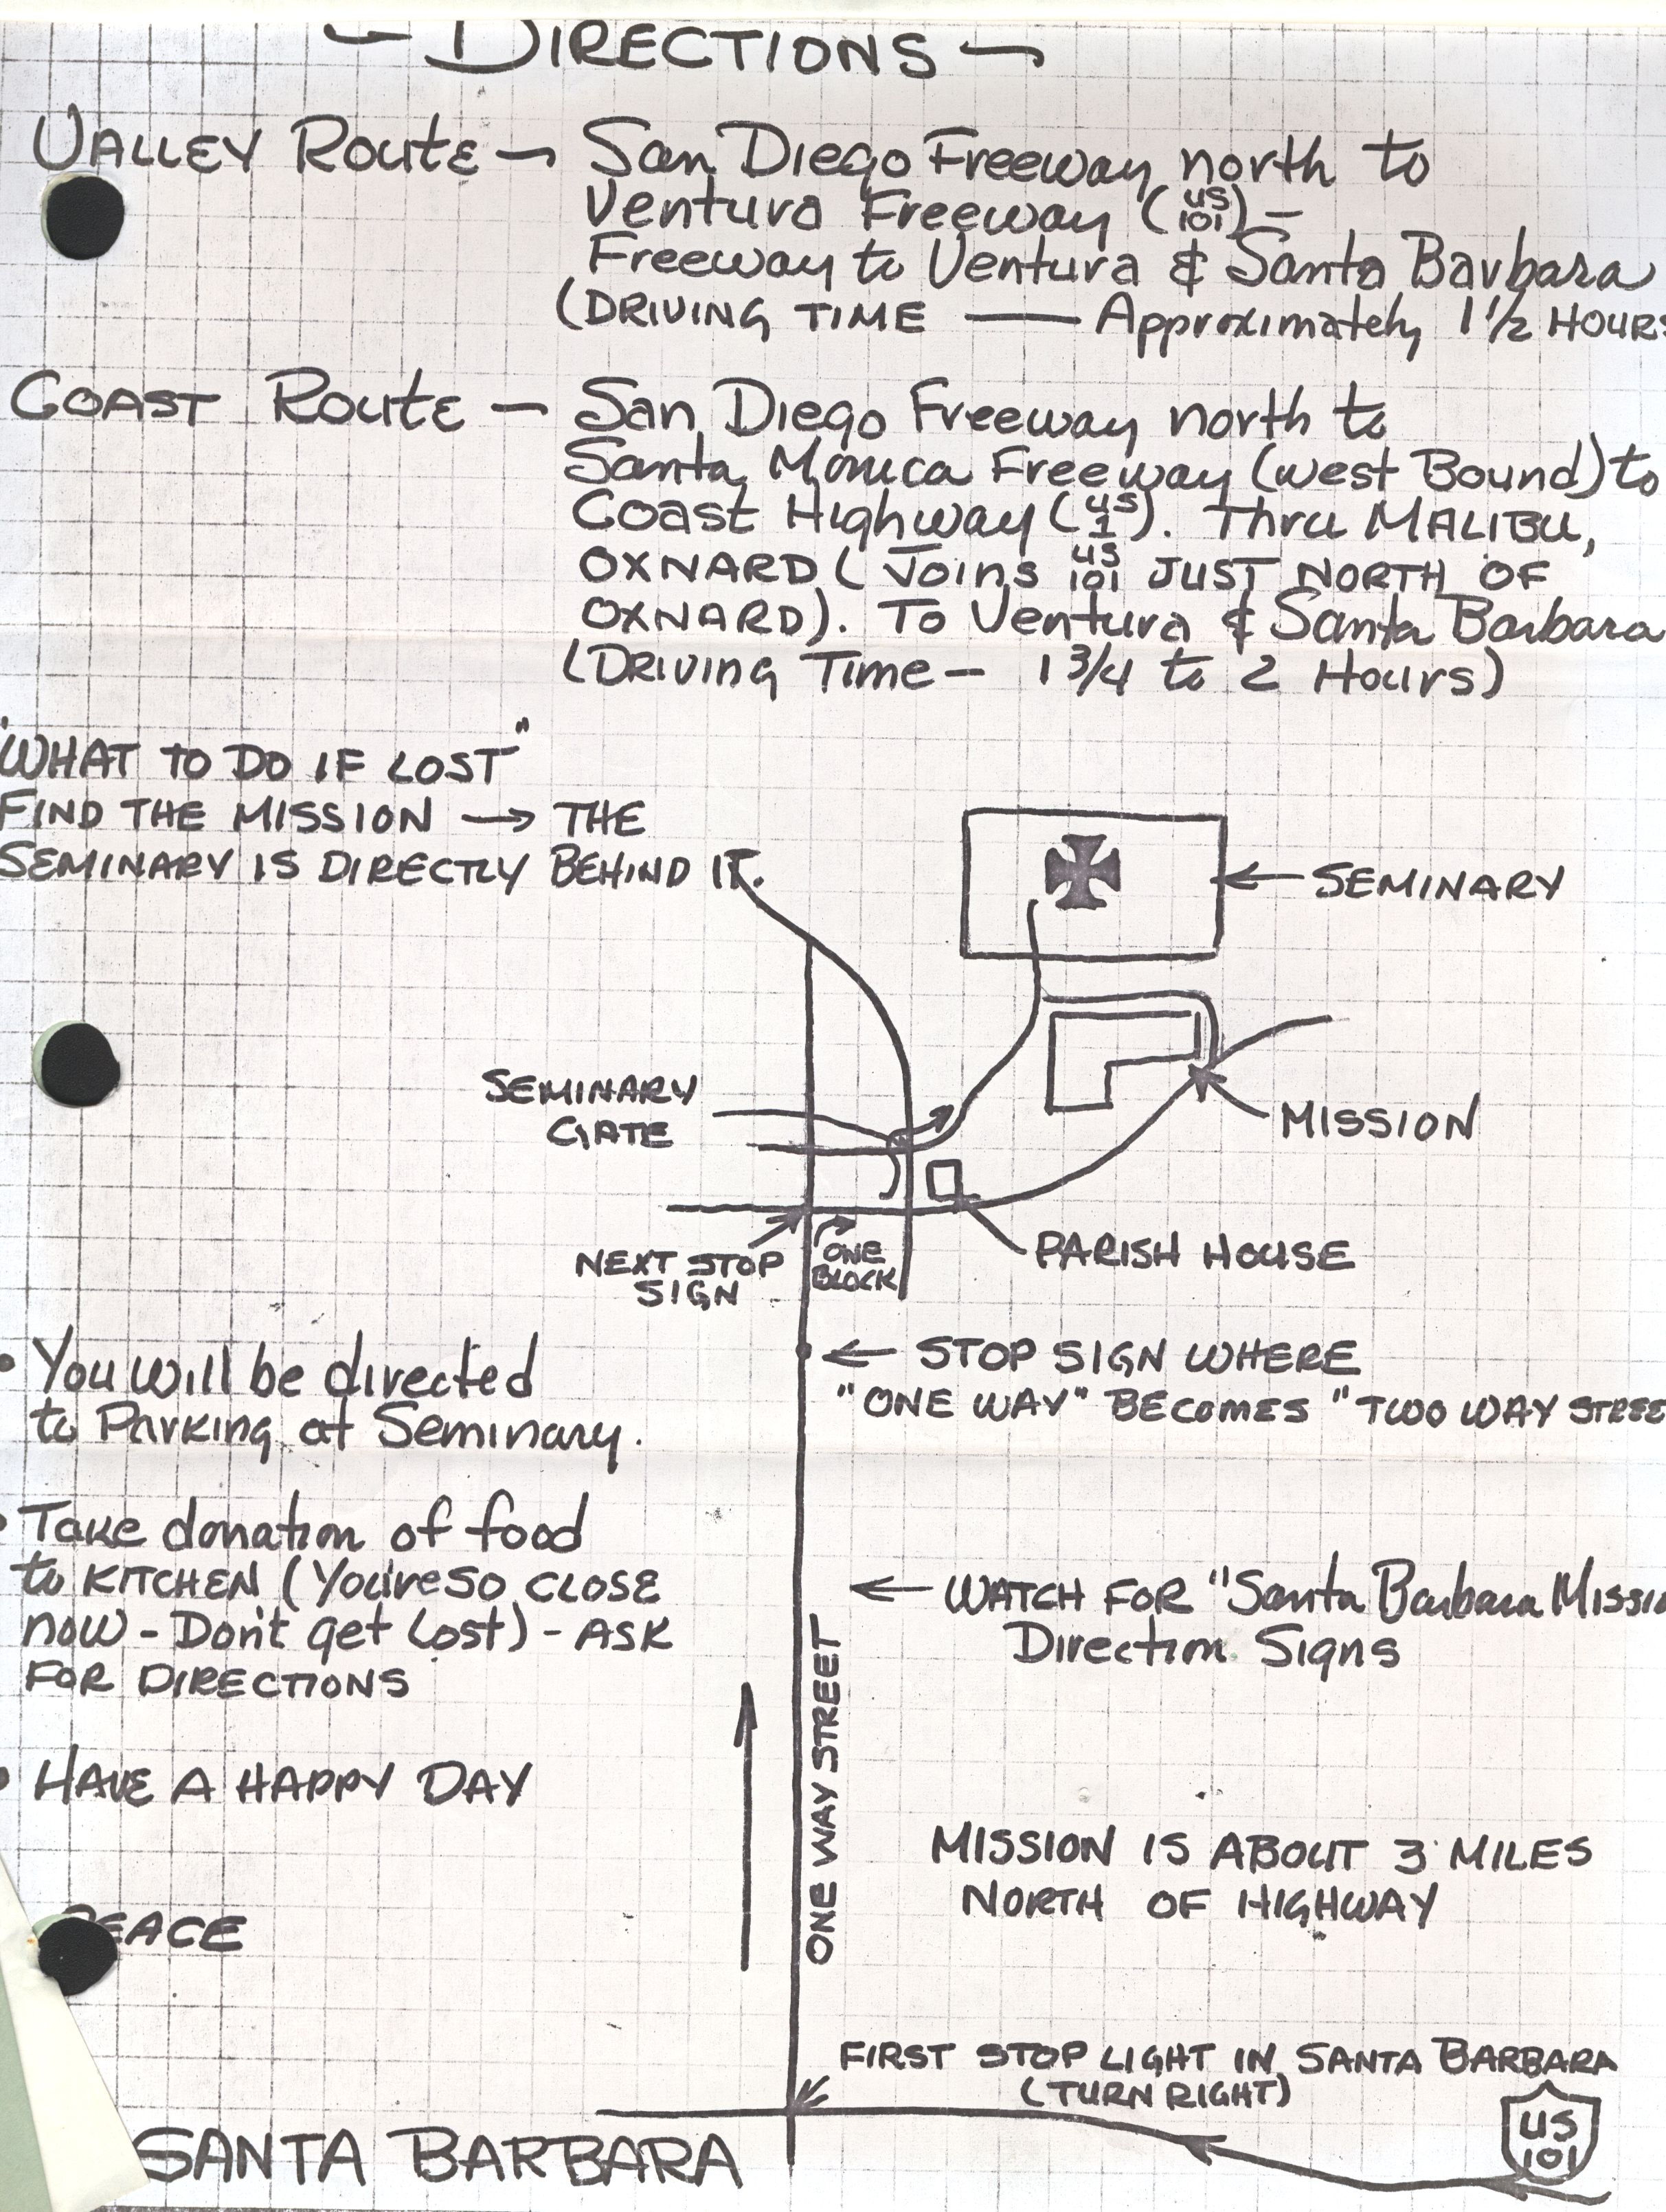 — DIRECTIONS —
VALLEY ROUTE — San Diego Freeway north to
Ventura Freeway (US 101) —
Freeway to Ventura & Santa Barbara
(DRIVING TIME — Approximately 1 1/2 HOURS
COAST ROUTE — San Diego Freeway north to
Santa Monica Freeway (west Bound) to
Coast Highway (US 1). Thru MALIBU,
OXNARD (Joins US 101 JUST NORTH OF
OXNARD). To Ventura & Santa Barbara
(Driving Time — 1 3/4 to 2 Hours)
"WHAT TO DO IF LOST"
FIND THE MISSION → THE
SEMINARY IS DIRECTLY BEHIND IT.
← SEMINARY
SEMINARY
GATE
MISSION
PARISH HOUSE
NEXT STOP
SIGN
ONE
BLOCK
← STOP SIGN WHERE
"ONE WAY" BECOMES "TWO WAY STREE
• You will be directed
to Parking at Seminary.
• Take donation of food
to KITCHEN (You're so CLOSE
now - Don't get Lost) - ASK
FOR DIRECTIONS
← WATCH FOR "Santa Barbara Missio
Direction Signs
ONE WAY STREET
• HAVE A HAPPY DAY
MISSION IS ABOUT 3 MILES
NORTH OF HIGHWAY
PEACE
FIRST STOP LIGHT IN SANTA BARBARA
(TURN RIGHT)
US
101
SANTA BARBARA